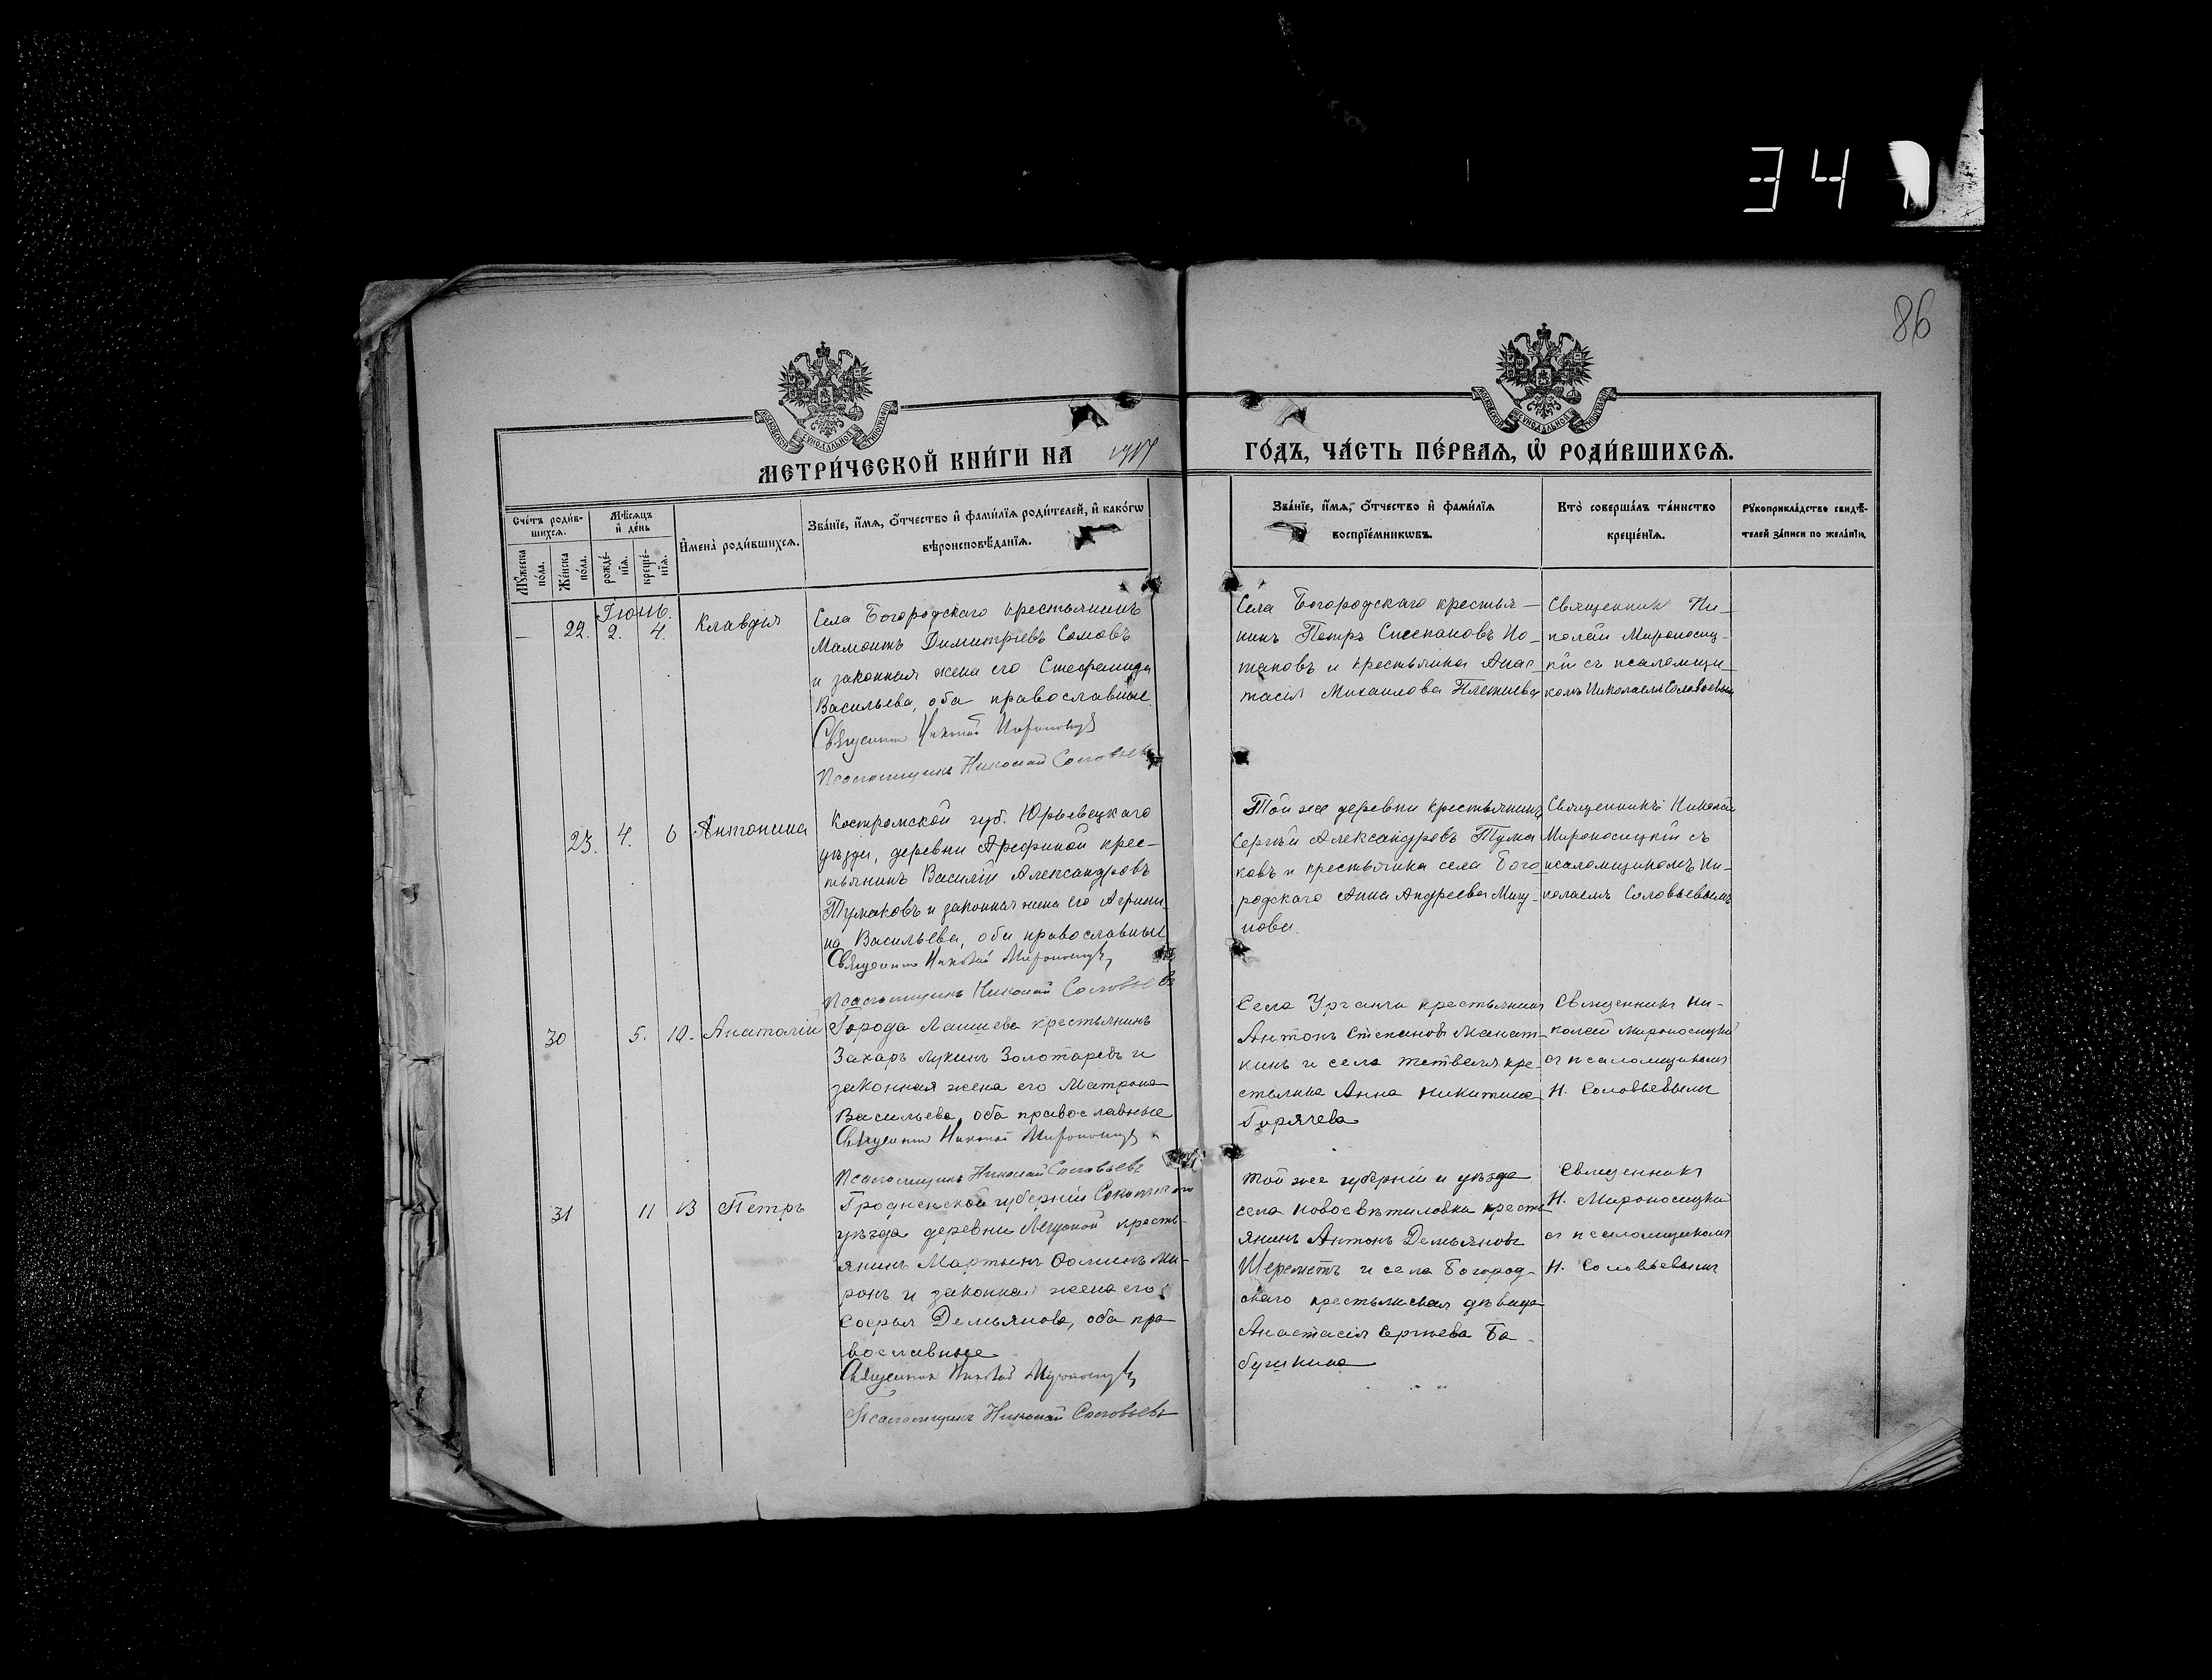 34
86
МЕТРИ́ЧЕСКОЙ КНИ́ГИ НА 1917
ГО́ДЪ, ЧА́СТЬ ПЕ́РВАѦ, Ѡ҆ РОДИ́ВШИХСѦ.
Сче́тъ роди́в-
шихсѧ.
Мѣ́сѧцъ
и҆ де́нь
И҆мена̀ роди́вшихсѧ.
Зва́нїе, и҆́мѧ, ѻ҆́тчество и҆ фами́лїѧ роди́телей, и҆ како́гѡ
вѣроисповѣ́данїѧ.
Мꙋ́жеска
по́ла.
Же́нска
по́ла.
рожде́-
нїѧ.
креще́-
нїѧ.
Зва́нїе, и҆́мѧ, ѻ҆́тчество и҆ фами́лїѧ
воспрїе́мникѡвъ.
Кто̀ соверша́лъ та́инство
креще́нїѧ.
Рꙋкоприкла́дство свидѣ́-
телей за́писи по жела́нїю.
22. 2. 4. Клавдія
Села Богородскаго крестьянинъ
Мамонтъ Димитріевъ Сомовъ
и законная жена его Стефанида
Васильева, оба православные.
Священникъ Николай Мироносицкій
Псаломщикъ Николай Соловьевъ
Села Богородскаго крестья-
нинъ Петръ Стефановъ По-
таповъ и крестьянка Анас-
тасія Михаилова
Священникъ Ни-
колай Мироносиц-
кій съ псаломщи-
комъ Николаемъ Соловьевымъ
23. 4. 6 Антонина
Костромской губ. Юрьевецкаго
уѣзда, деревни Арефиной крес-
тьянинъ Василій Александровъ
Тумаковъ и законная жена его Агрипи-
на Васильева, оба православные
Священникъ Николай Мироносицкій
Псаломщикъ Николай Соловьевъ
Той же деревни крестьянинъ
Сергѣй Александровъ Тума
ковъ и крестьянка села Бого
родскаго Анна Андреева
Священникъ Николай
Мироносицкій съ
псаломщикомъ Ни-
колаемъ Соловьевымъ
30 5. 10. Анатолій
Города Лаишева крестьянинъ
Захаръ Лукинъ Золотаревъ и
законная жена его Матрона
Васильева, оба православные
Священникъ Николай Мироносицкій
Псаломщикъ Николай Соловьевъ
Села Урганчи крестьянинъ
Антонъ Степановъ
кинъ и села кре-
стьянка Анна Никитина
Горячева
Священникъ Ни-
колай Мироносицкій
съ псаломщикомъ
Н. Соловьевымъ
31 11 13 Петръ
Гродненской губерніи
уѣзда деревни кресть-
янинъ Мартынъ Ѳоминъ Ми-
ронъ и законная жена его
Софья Демьянова, оба пра
вославные
Священникъ Николай Мироносицкій
Псаломщикъ Николай Соловьевъ
Той же губерніи и уѣзда
села Новосвѣтиловки кресть
янинъ Антонъ Демьяновъ
Шереметъ и села Богород-
скаго крестьянская дѣвица
Анастасія Сергѣева Ба-
бушкина
Священникъ
Н. Мироносицкій
съ псаломщикомъ
Н. Соловьевымъ